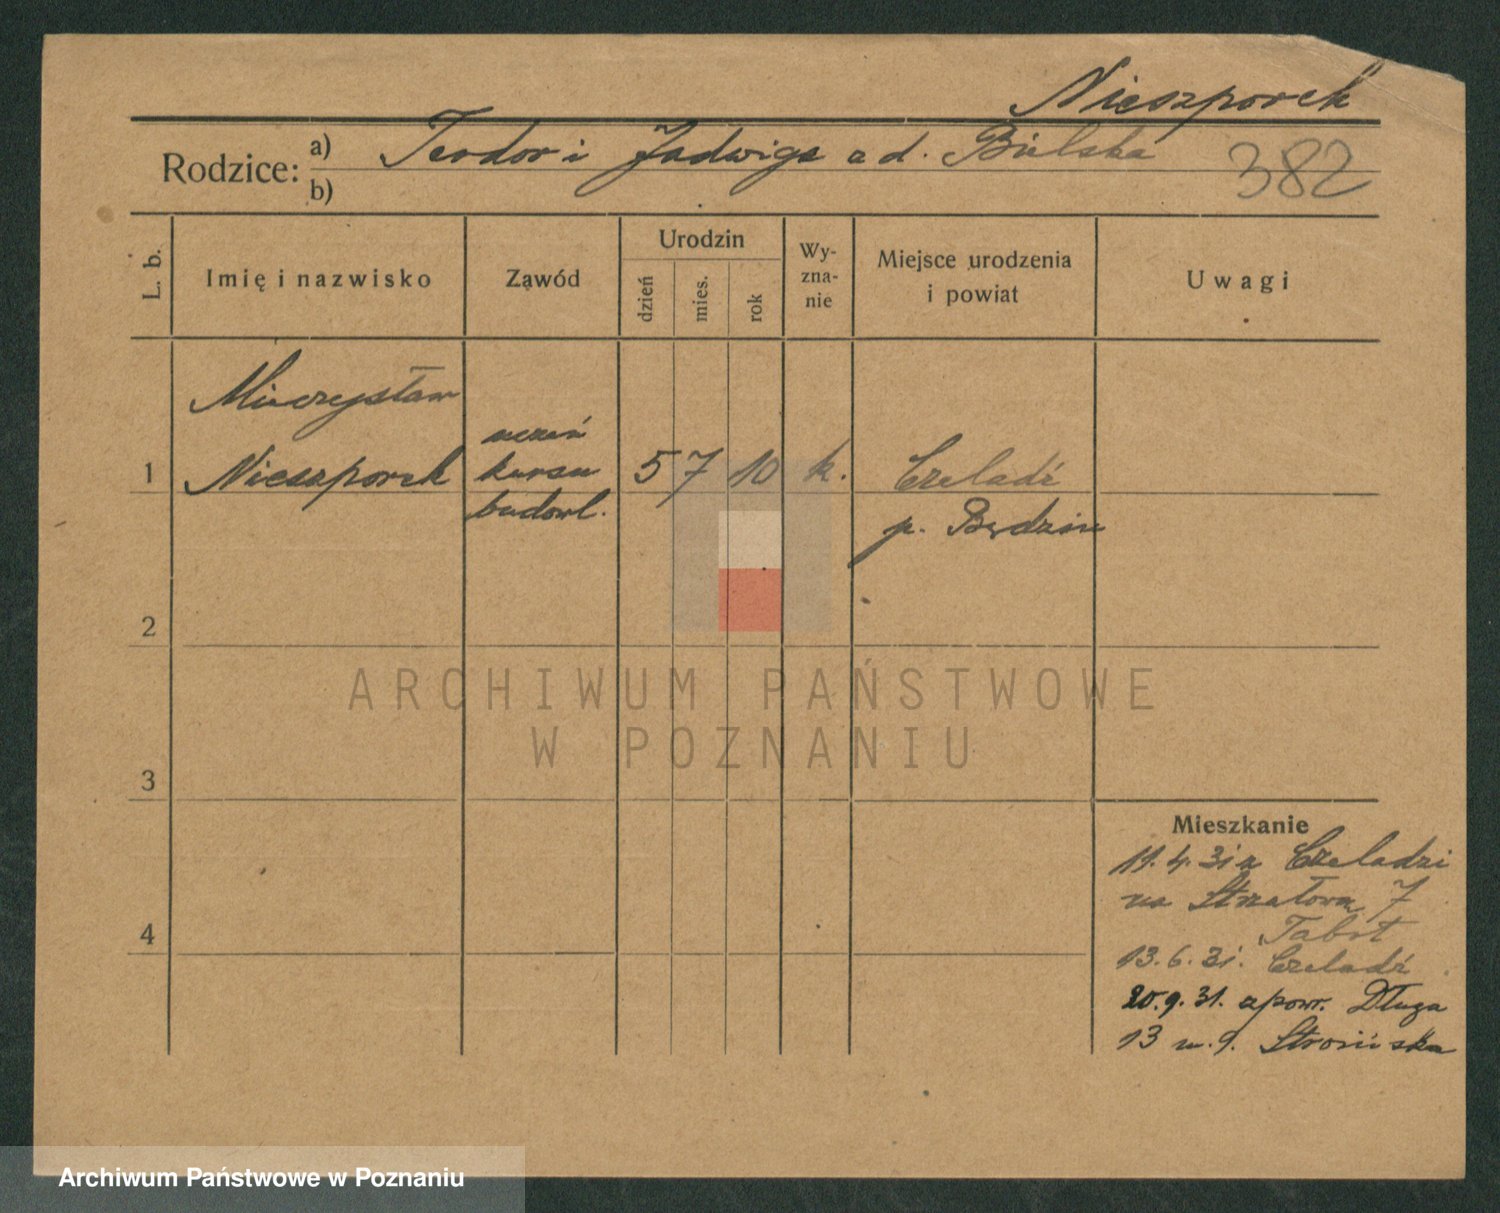 Nieszporek
Rodzice: a) Teodor i Jadwiga z d. Bielska
b)
382
L. b.
Imię i nazwisko
Zawód
Urodzin
dzień
mies.
rok
Wy-
zna-
nie
Miejsce urodzenia
i powiat
Uwagi
Mieczysław
1 Nieszporek
uczeń
kursu
budowl.
5 7 10 k.
Czeladź
p. Będzin
2
3
4
Mieszkanie
11.4.31 z Czeladzi
na Strzałowa 7
Tabrt
13.6.31. Czeladź
20.9.31. zpowr. Długa
13 u. 9. Strosińska
ARCHIWUM PAŃSTWOWE
W POZNANIU
Archiwum Państwowe w Poznaniu